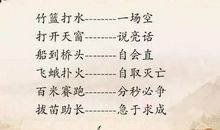 竹篮打水--------一场空
打开天窗--------说亮话
船到桥头--------自会直
飞蛾扑火--------自取灭亡
百米赛跑--------分秒必争
拔苗助长--------急于求成